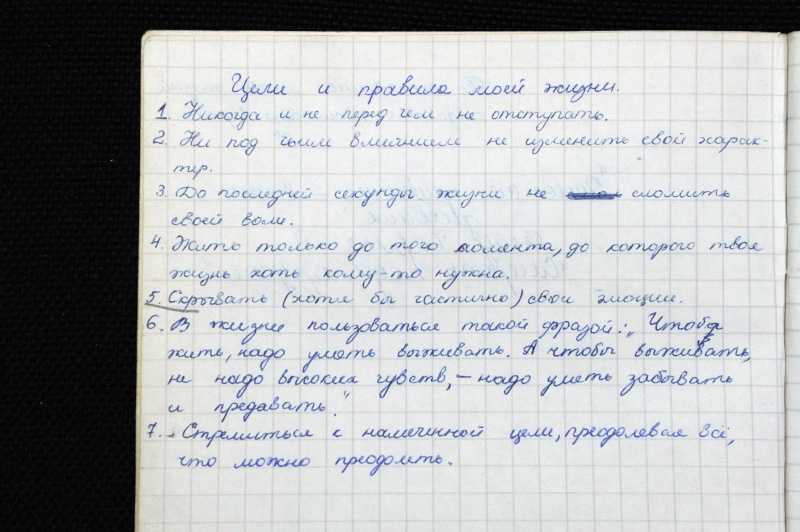 Цели и правила моей жизни.
1. Никогда и не перед чем не отступать.
2. Ни под чьим влиянием не изменить свой харак-
тер.
3. До последней секунды жизни не сломить
своей воли.
4. Жить только до того момента, до которого твоя
жизнь хоть кому-то нужна.
5. Скрывать (хотя бы частично) свои эмоции.
6. В жизни пользоваться такой фразой: „Чтобы
жить, надо уметь выживать. А чтобы выживать,
не надо высоких чувств, – надо уметь забывать
и предавать."
7. Стремиться к намеченной цели, преодолевая всё,
что можно преодолеть.